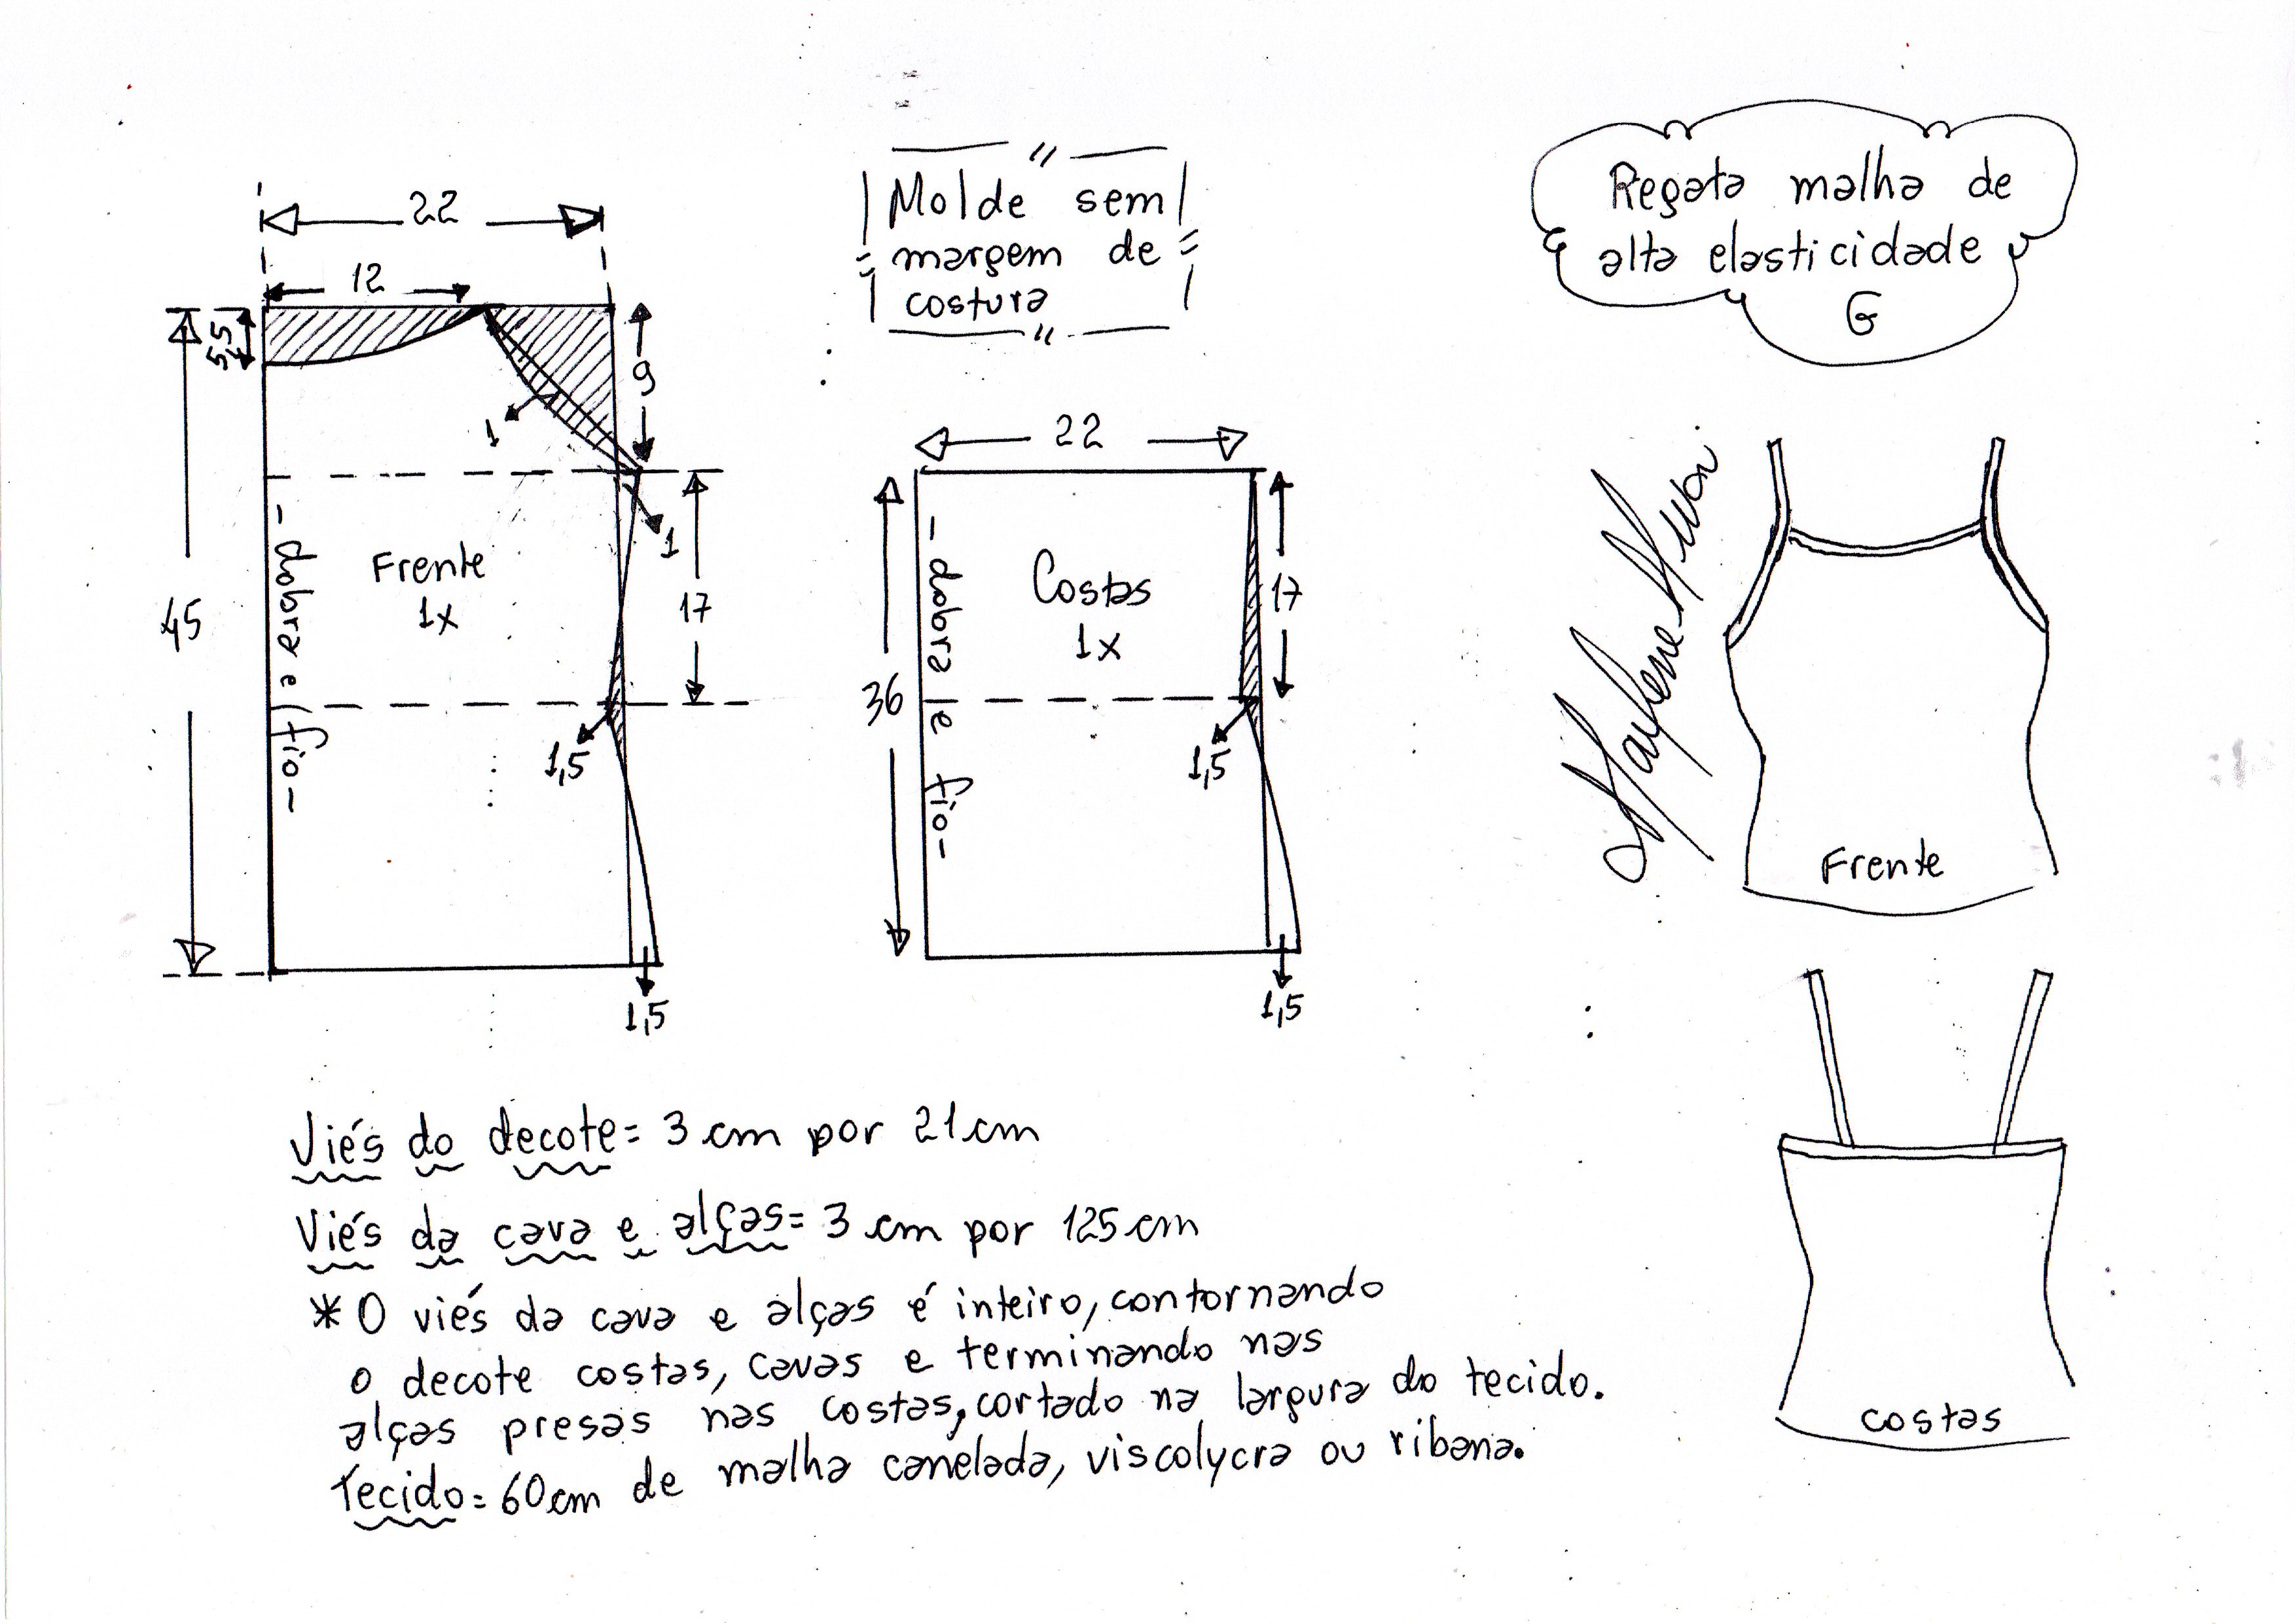 22
12
5,5
9
1
1
45
17
- dobra e fio -
Frente
1x
1,5
1,5
Molde sem
margem de
costura
22
36
17
- dobra e fio -
Costas
1x
1,5
1,5
Regata malha de
alta elasticidade
G
Marlene Mukai
Frente
costas
Viés do decote= 3 cm por 21cm
Viés da cava e alças= 3 cm por 125cm
* O viés da cava e alças é inteiro, contornando
o decote costas, cavas e terminando nas
alças presas nas costas, cortado na largura do tecido.
Tecido= 60cm de malha canelada, viscolycra ou ribana.